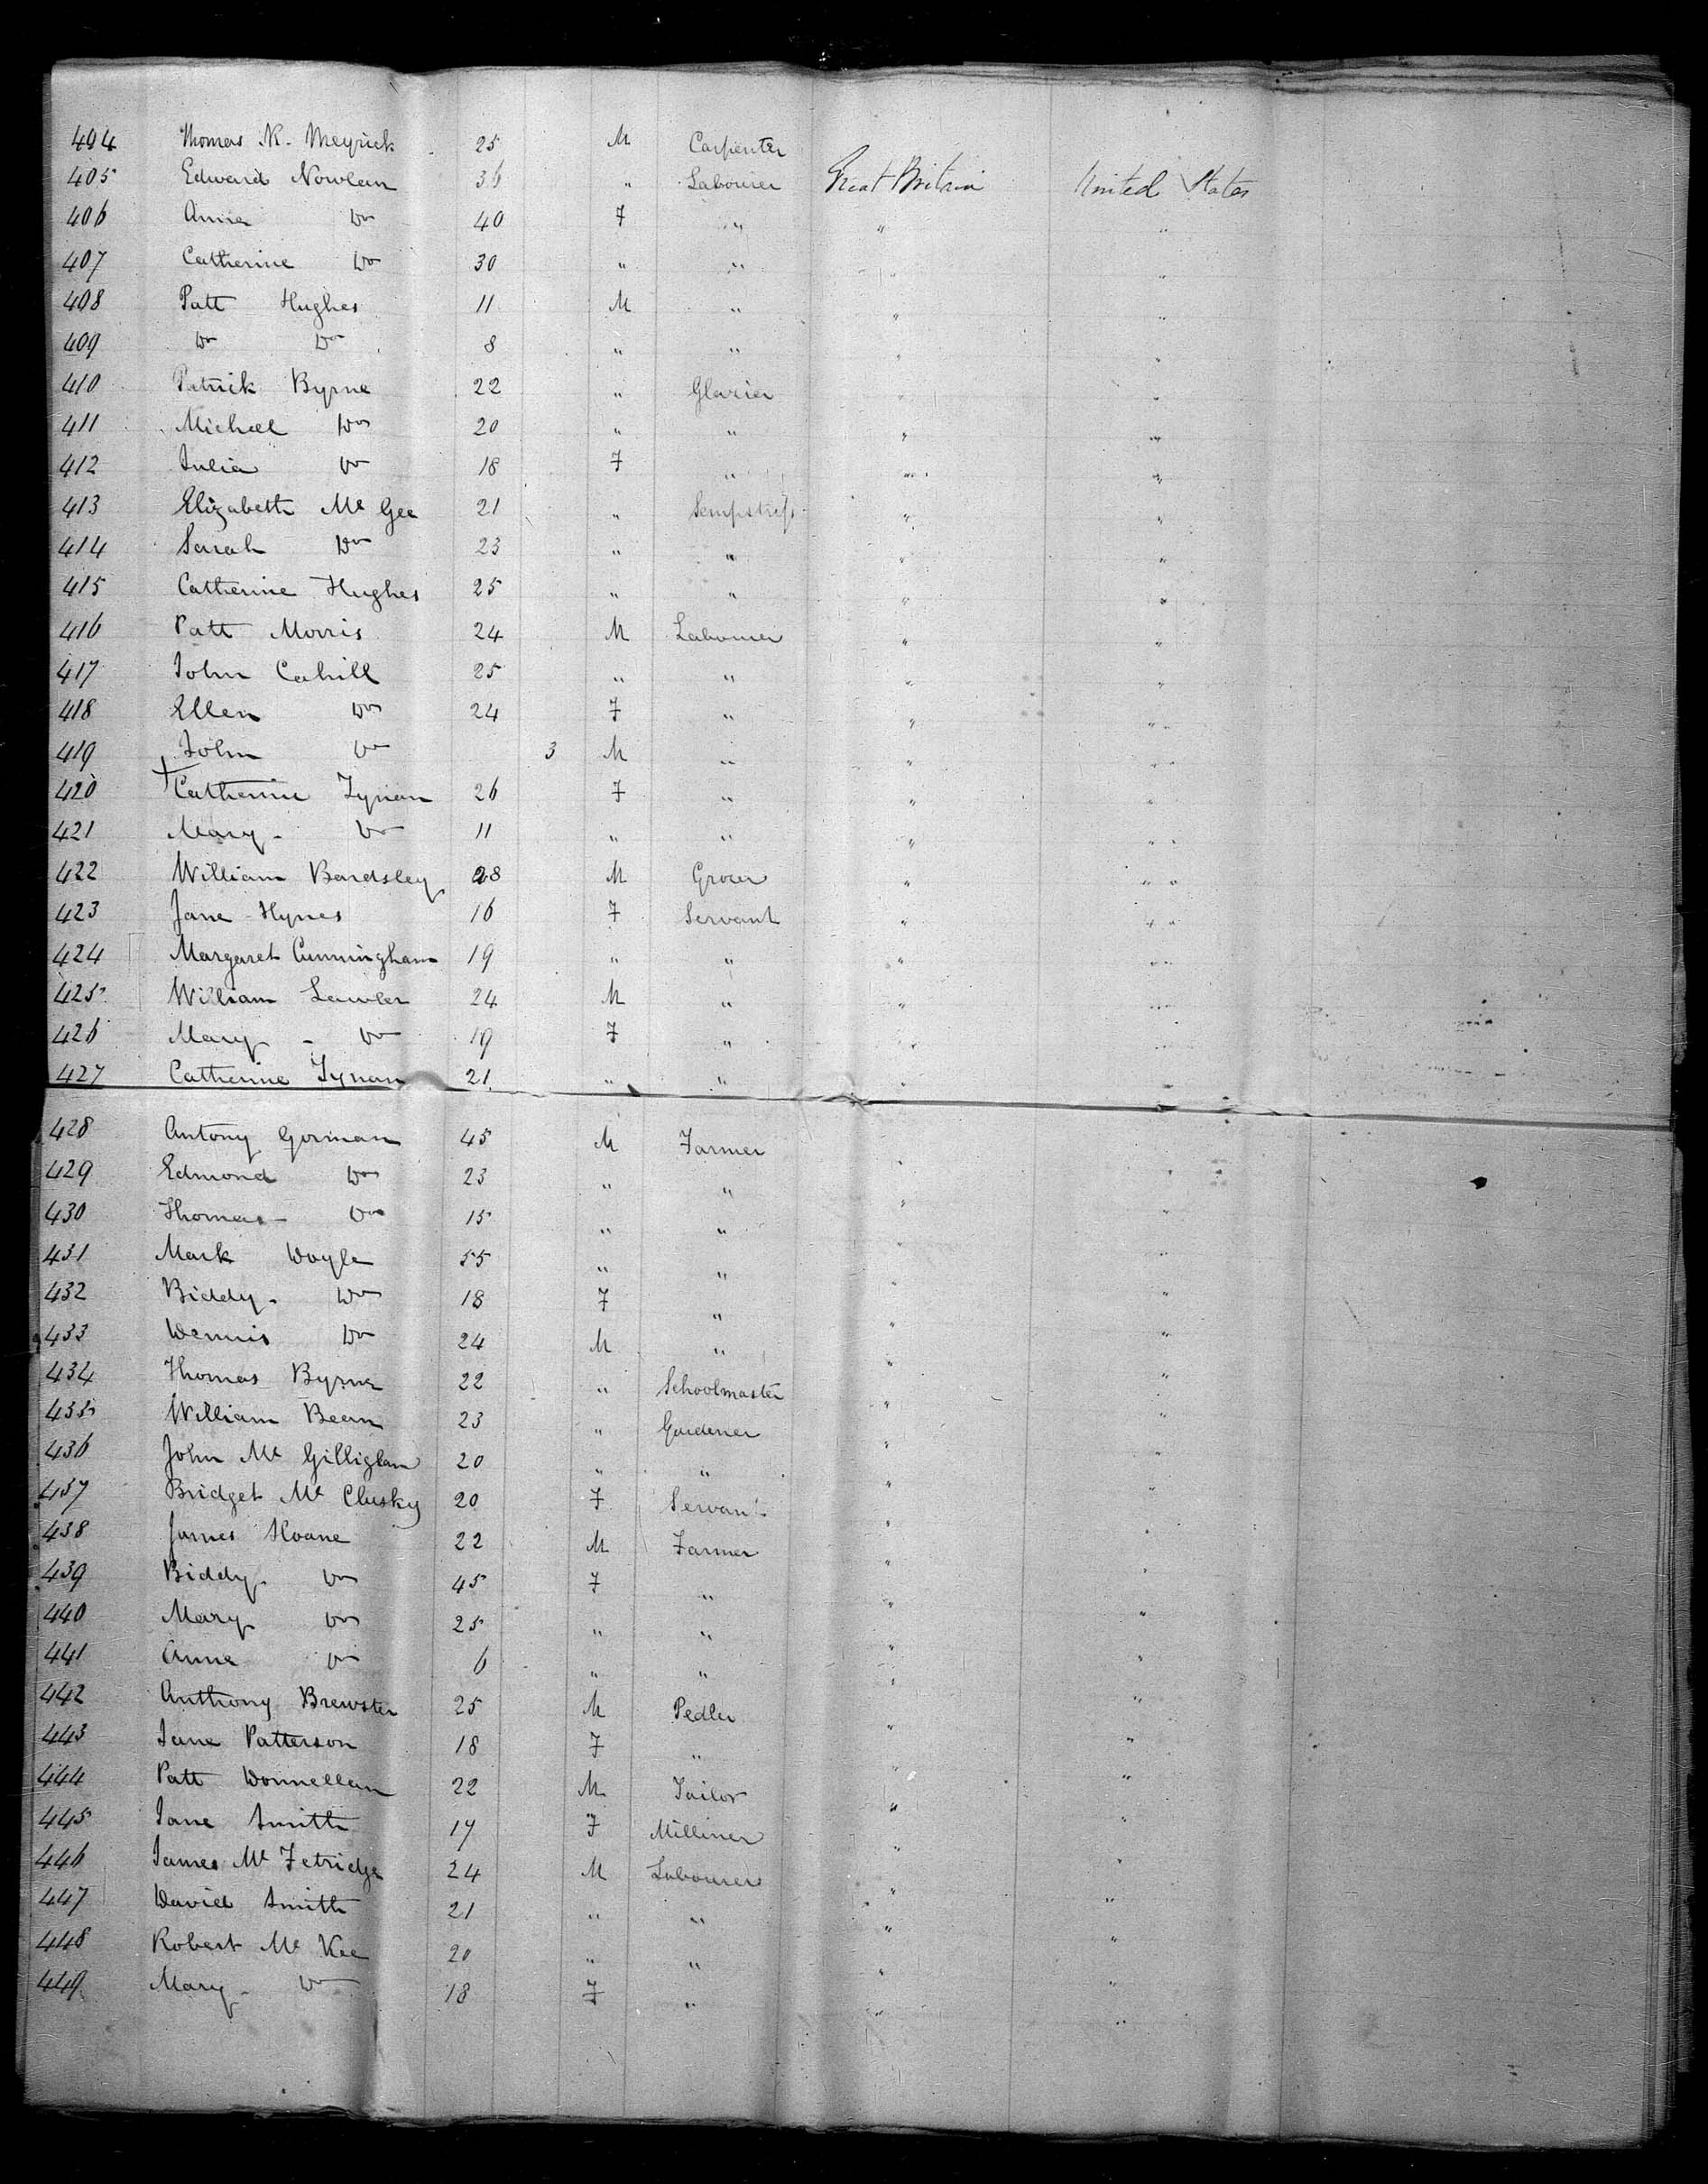 494 Thomas R. Meyrick 25 M Carpenter
405 Edward Nowlan 36 " Labourer Great Britain United States
406 Anna Do 40 F " " "
407 Catherine Do 30 " " " "
408 Patt Hughes 11 M " " "
409 Do Do 8 " " " "
410 Patrick Byrne 22 " Glazier " "
411 Michael Do 20 " " " "
412 Julia Do 18 F " " "
413 Elizabeth Mc Gee 21 " Sempstress " "
414 Sarah Do 23 " " " "
415 Catherine Hughes 25 " " " "
416 Patt Morris 24 M Labourer " "
417 John Cahill 25 " " " "
418 Ellen Do 24 F " " "
419 John Do 3 M " " "
420 + Catherine Tynan 26 F " " "
421 Mary Do 11 " " " "
422 William Bardsley 28 M Grocer " "
423 Jane Hynes 16 F Servant " "
424 Margaret Cunningham 19 " " " "
425 William Lawler 24 M " " "
426 Mary Do 19 F " " "
427 Catherine Tynan 21 " " "
428 Antony Gorman 45 M Farmer " "
429 Edmond Do 23 " " " "
430 Thomas Do 15 " " " "
431 Mark Doyle 55 " " " "
432 Biddy Do 18 F " " "
433 Dennis Do 24 M " " "
434 Thomas Byrne 22 " Schoolmaster " "
435 William Bean 23 " Gardener " "
436 John Mc Gillighan 20 " " " "
437 Bridget Mc Clusky 20 F Servant " "
438 James Hoane 22 M Farmer " "
439 Biddy Do 45 F " " "
440 Mary Do 25 " " " "
441 Anne Do 6 " " " "
442 Anthony Brewster 25 M Pedler " "
443 Jane Patterson 18 F " " "
444 Patt Donnellan 22 M Tailor " "
445 Jane Smith 17 F Milliner " "
446 James Mc Fetridge 24 M Labourer " "
447 David Smith 21 " " " "
448 Robert Mc Kee 20 " " " "
449 Mary Do 18 F " " "